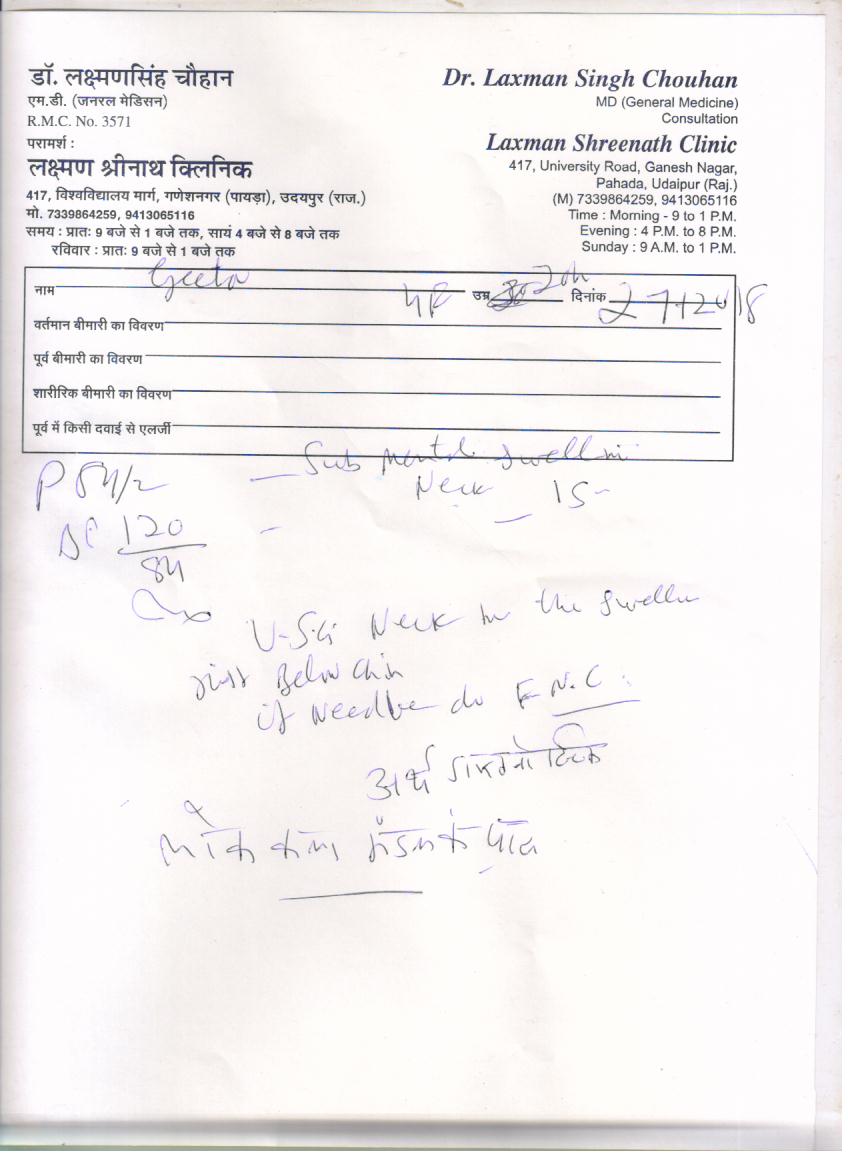 डॉ. लक्ष्मणसिंह चौहान
एम.डी. (जनरल मेडिसन)
R.M.C. No. 3571
परामर्श :
लक्ष्मण श्रीनाथ क्लिनिक
417, विश्वविद्यालय मार्ग, गणेशनगर (पायड़ा), उदयपुर (राज.)
मो. 7339864259, 9413065116
समय : प्रातः 9 बजे से 1 बजे तक, सायं 4 बजे से 8 बजे तक
रविवार : प्रातः 9 बजे से 1 बजे तक
Dr. Laxman Singh Chouhan
MD (General Medicine)
Consultation
Laxman Shreenath Clinic
417, University Road, Ganesh Nagar,
Pahada, Udaipur (Raj.)
(M) 7339864259, 9413065116
Time : Morning - 9 to 1 P.M.
Evening : 4 P.M. to 8 P.M.
Sunday : 9 A.M. to 1 P.M.
नाम Geeta उम्र दिनांक
वर्तमान बीमारी का विवरण
पूर्व बीमारी का विवरण
शारीरिक बीमारी का विवरण
पूर्व में किसी दवाई से एलर्जी
Sub mental swelling
P 84/2 Neck 15
120
84
U-S.G Neck the
Below chin
if Needbe do F.N.C.
अर्थ डायग्नोस्टिक